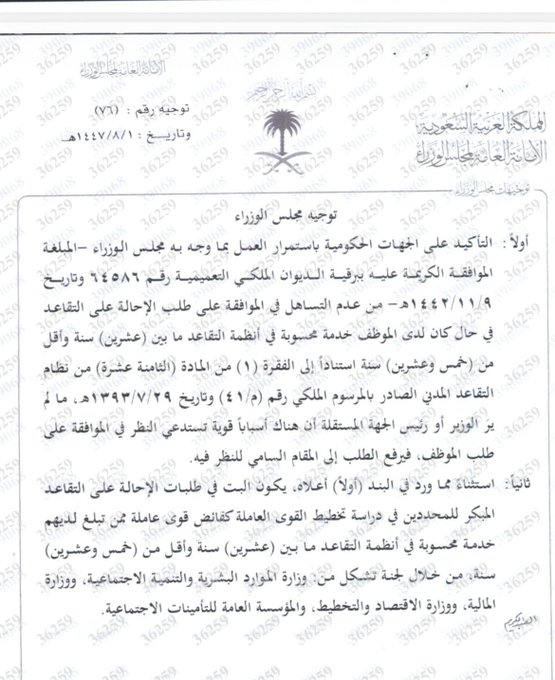 الأمانة العامة لمجلس الوزراء
بسم الله الرحمن الرحيم
المملكة العربية السعودية
الأمانة العامة لمجلس الوزراء
توجيه رقم : (٧٦)
وتاريخ : ١٤٤٧/٨/١هـ
توجيهات مجلس الوزراء
توجيه مجلس الوزراء
أولاً : التأكيد على الجهات الحكومية باستمرار العمل بما وجه به مجلس الوزراء -المبلغة
الموافقة الكريمة عليه ببرقية الديوان الملكي التعميمية رقم ٦٤٥٨٦ وتاريخ
١٤٤٢/١١/٩هـ- من عدم التساهل في الموافقة على طلب الإحالة على التقاعد
في حال كان لدى الموظف خدمة محسوبة في أنظمة التقاعد ما بين (عشرين) سنة وأقل
من (خمس وعشرين) سنة استناداً إلى الفقرة (١) من المادة (الثامنة عشرة) من نظام
التقاعد المدني الصادر بالمرسوم الملكي رقم (م/٤١) وتاريخ ١٣٩٣/٧/٢٩هـ، ما لم
ير الوزير أو رئيس الجهة المستقلة أن هناك أسباباً قوية تستدعي النظر في الموافقة على
طلب الموظف، فيرفع الطلب إلى المقام السامي للنظر فيه.
ثانياً : استثناءً مما ورد في البند (أولاً) أعلاه، يكون البت في طلبات الإحالة على التقاعد
المبكر للمحددين في دراسة تخطيط القوى العاملة كفائض قوى عاملة ممن تبلغ لديهم
خدمة محسوبة في أنظمة التقاعد ما بين (عشرين) سنة وأقل من (خمس وعشرين)
سنة، من خلال لجنة تشكل من: وزارة الموارد البشرية والتنمية الاجتماعية، ووزارة
المالية، ووزارة الاقتصاد والتخطيط، والمؤسسة العامة للتأمينات الاجتماعية.
36259
39068